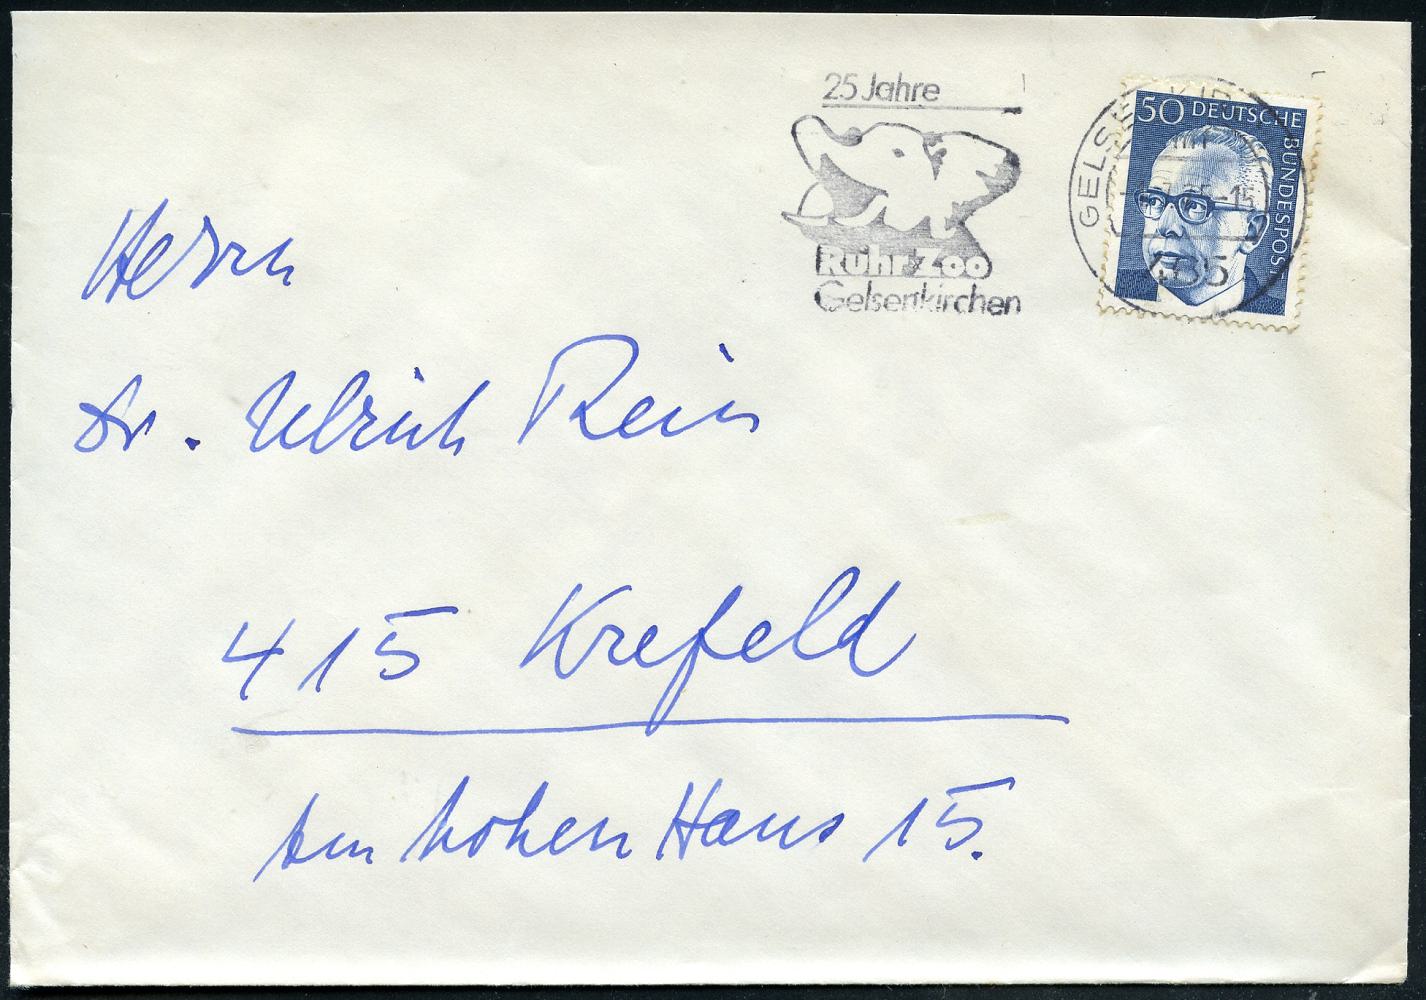 25 Jahre
Ruhr Zoo
Gelsenkirchen
50 DEUTSCHE BUNDESPOST
Herrn
Dr. Ulrich Rein
415 Krefeld
Am hohen Haus 15.